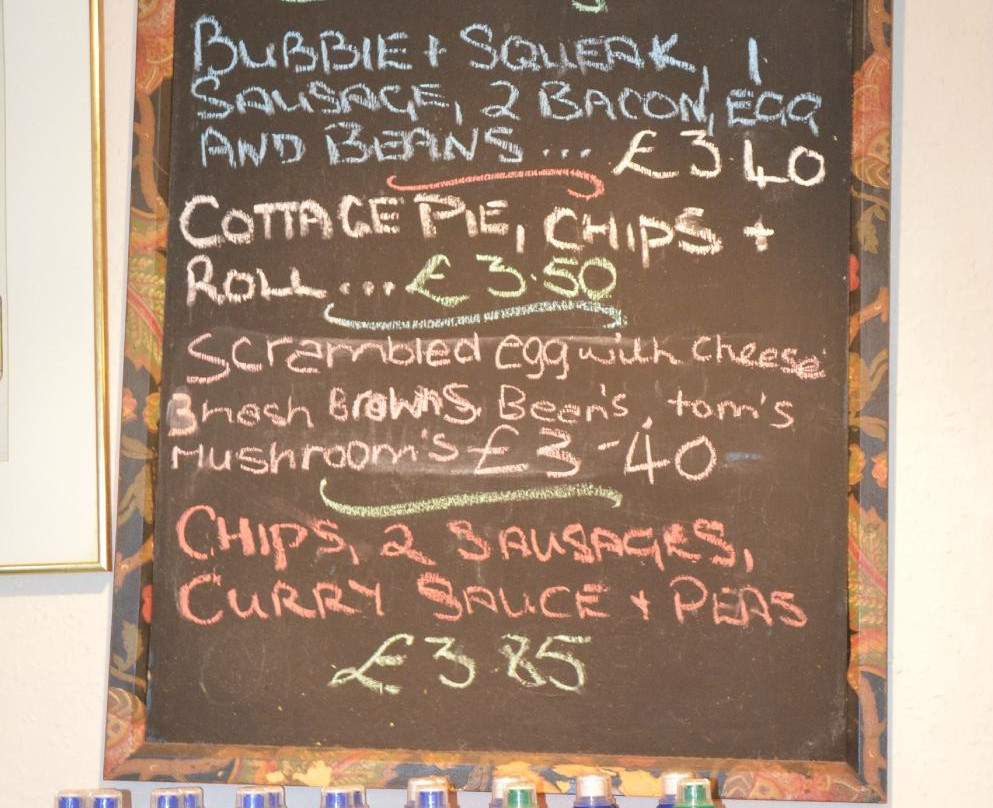 BUBBIE + SQUEAK, 1
SAUSAGE, 2 BACON, EGG
AND BEANS... £3.40
COTTAGE PIE, CHIPS +
ROLL... £3.50
Scrambled egg with cheese
3 hash BROWNS, Bean's, tom's
Mushroom's £3-40
CHIPS, 2 SAUSAGES,
CURRY SAUCE + PEAS
£3.85